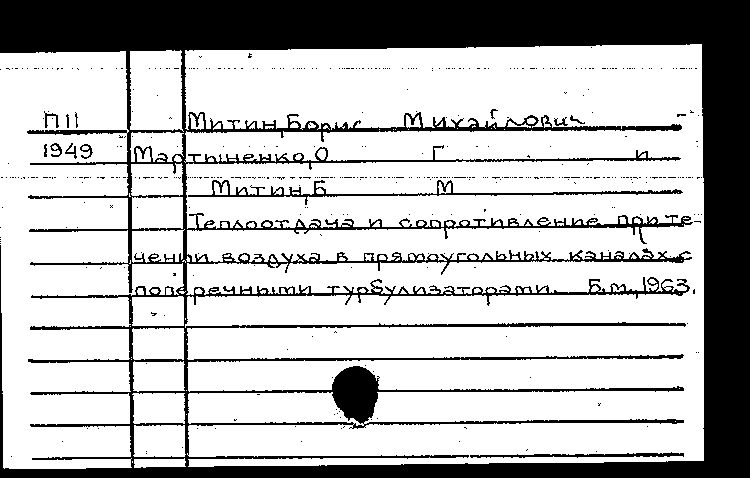 П11 Митин, Борис Михайлович
1949 Мартыненко, О Г и
Митин, Б М
Теплоотдача и сопротивление при те-
чении воздуха в прямоугольных каналах с
поперечными турбулизаторами. Б.м., 1963.